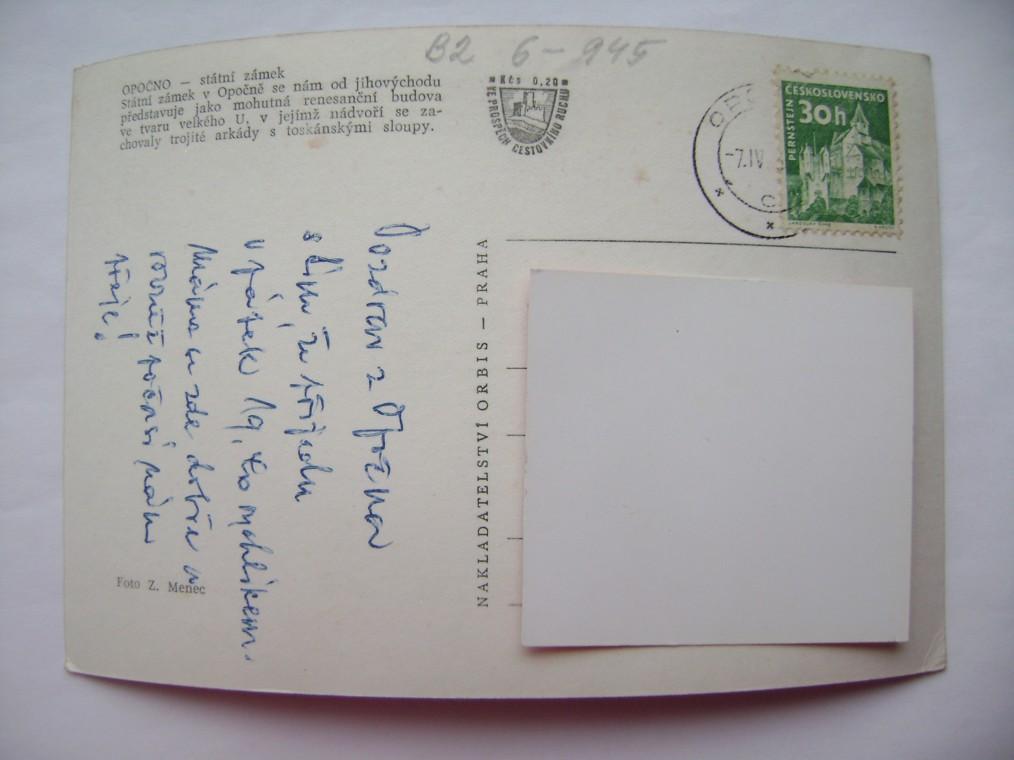 B2 6-945
OPOČNO — státní zámek
Státní zámek v Opočně se nám od jihovýchodu
představuje jako mohutná renesanční budova
ve tvaru velkého U, v jejímž nádvoří se za-
chovaly trojité arkády s toskánskými sloupy.
Kčs 0,20
VE PROSPĚCH CESTOVNÍHO RUCHU
-7.IV
ČESKOSLOVENSKO
30h
PERNŠTEJN
Pozdrav z Opočna
s tím, že přijedu
v pátek 19, tro rychlíkem.
Máme se zde dobře a
rovněž počasí nám
přeje!
NAKLADATELSTVÍ ORBIS — PRAHA
Foto Z. Menec